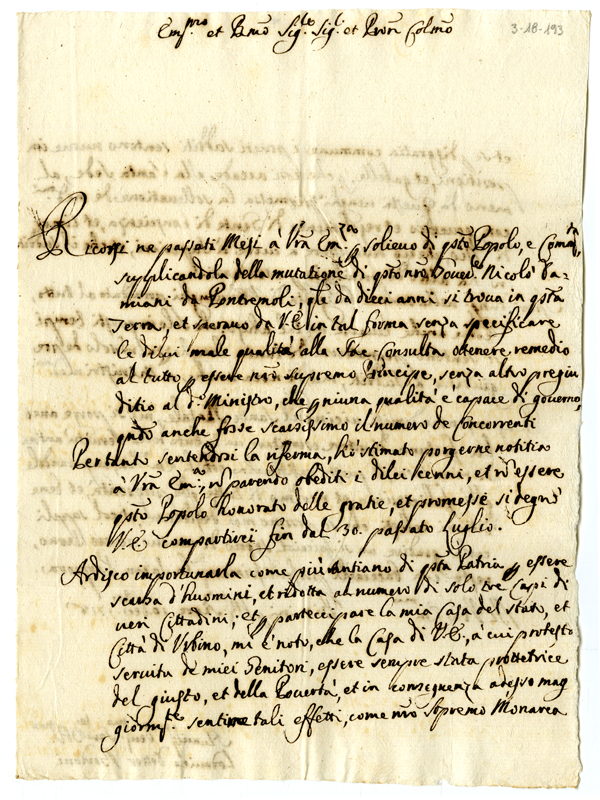 Em.mo et Rmo Sig.re Sig.r et Pron Colmo
3-18-193
Ricorsi ne passati Mesi à Vra Em.za p solievo di qsto Popolo, e Com.tà
supplicandola della mutatione di qsto nro Gover.re Nicolò Da=
miani da Pontremoli, qle da dieci anni si troua in qsta
Terra, et sperauo da V.E. in tal forma senza specificare
le dilui male qualità, alla Sac. Consulta ottenere remedio
al tutto p essere nro supremo Principe, senza altro pregiu
ditio al d.o Ministro, che p niuna qualità è capace di governo,
qndo anche fosse scarsissimo il numero de Concorrenti
Pertanto sentendosi la riferma, hò stimato porgerne notitia
à Vra Em.a, nō parendo obediti i dilei cenni, et nō essere
qsto Popolo honorato delle gratie, et promesse si degnò
V.E. compartirci fin dal 30. passato Luglio.
Ardisco importunarla come più antiano di qsta Patria p essere
scarsa d'huomini, et ridotta al numero di solo tre Capi di
ueri Cittadini; et p partecipare la mia Casa del stato, et
Città di Vrbino, mi è noto, che la Casa di V.E. à cui protesto
seruitù de miei Genitori, essere sempre stata protettrice
del giusto, et della Pouertà, et in conseguenza adesso mag
giorm.te sentire tali effetti, come nro Sopremo Monarca